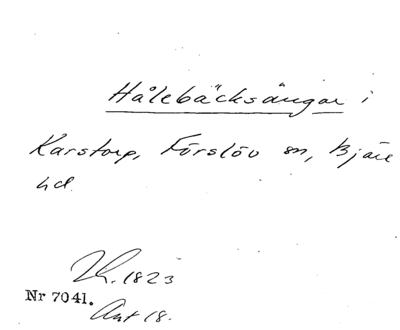 Hålebäcksängar i
Karstorp, Förslöv sn, Bjäre
hd.
1823
Nr 7041.
Akt 18.